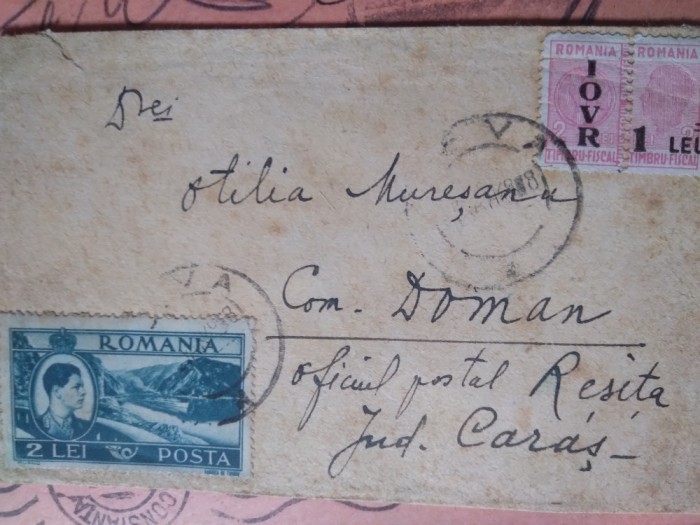 ROMANIA
ROMANIA
IOVR
1 LEU
TIMBRU-FISCAL
TIMBRU-FISCAL
Drei
Otilia Mureșanu
Com. DOMAN
oficiul postal Resita
Jud. Caraș
ROMANIA
2 LEI POSTA
VA
VA
CONSTANTA